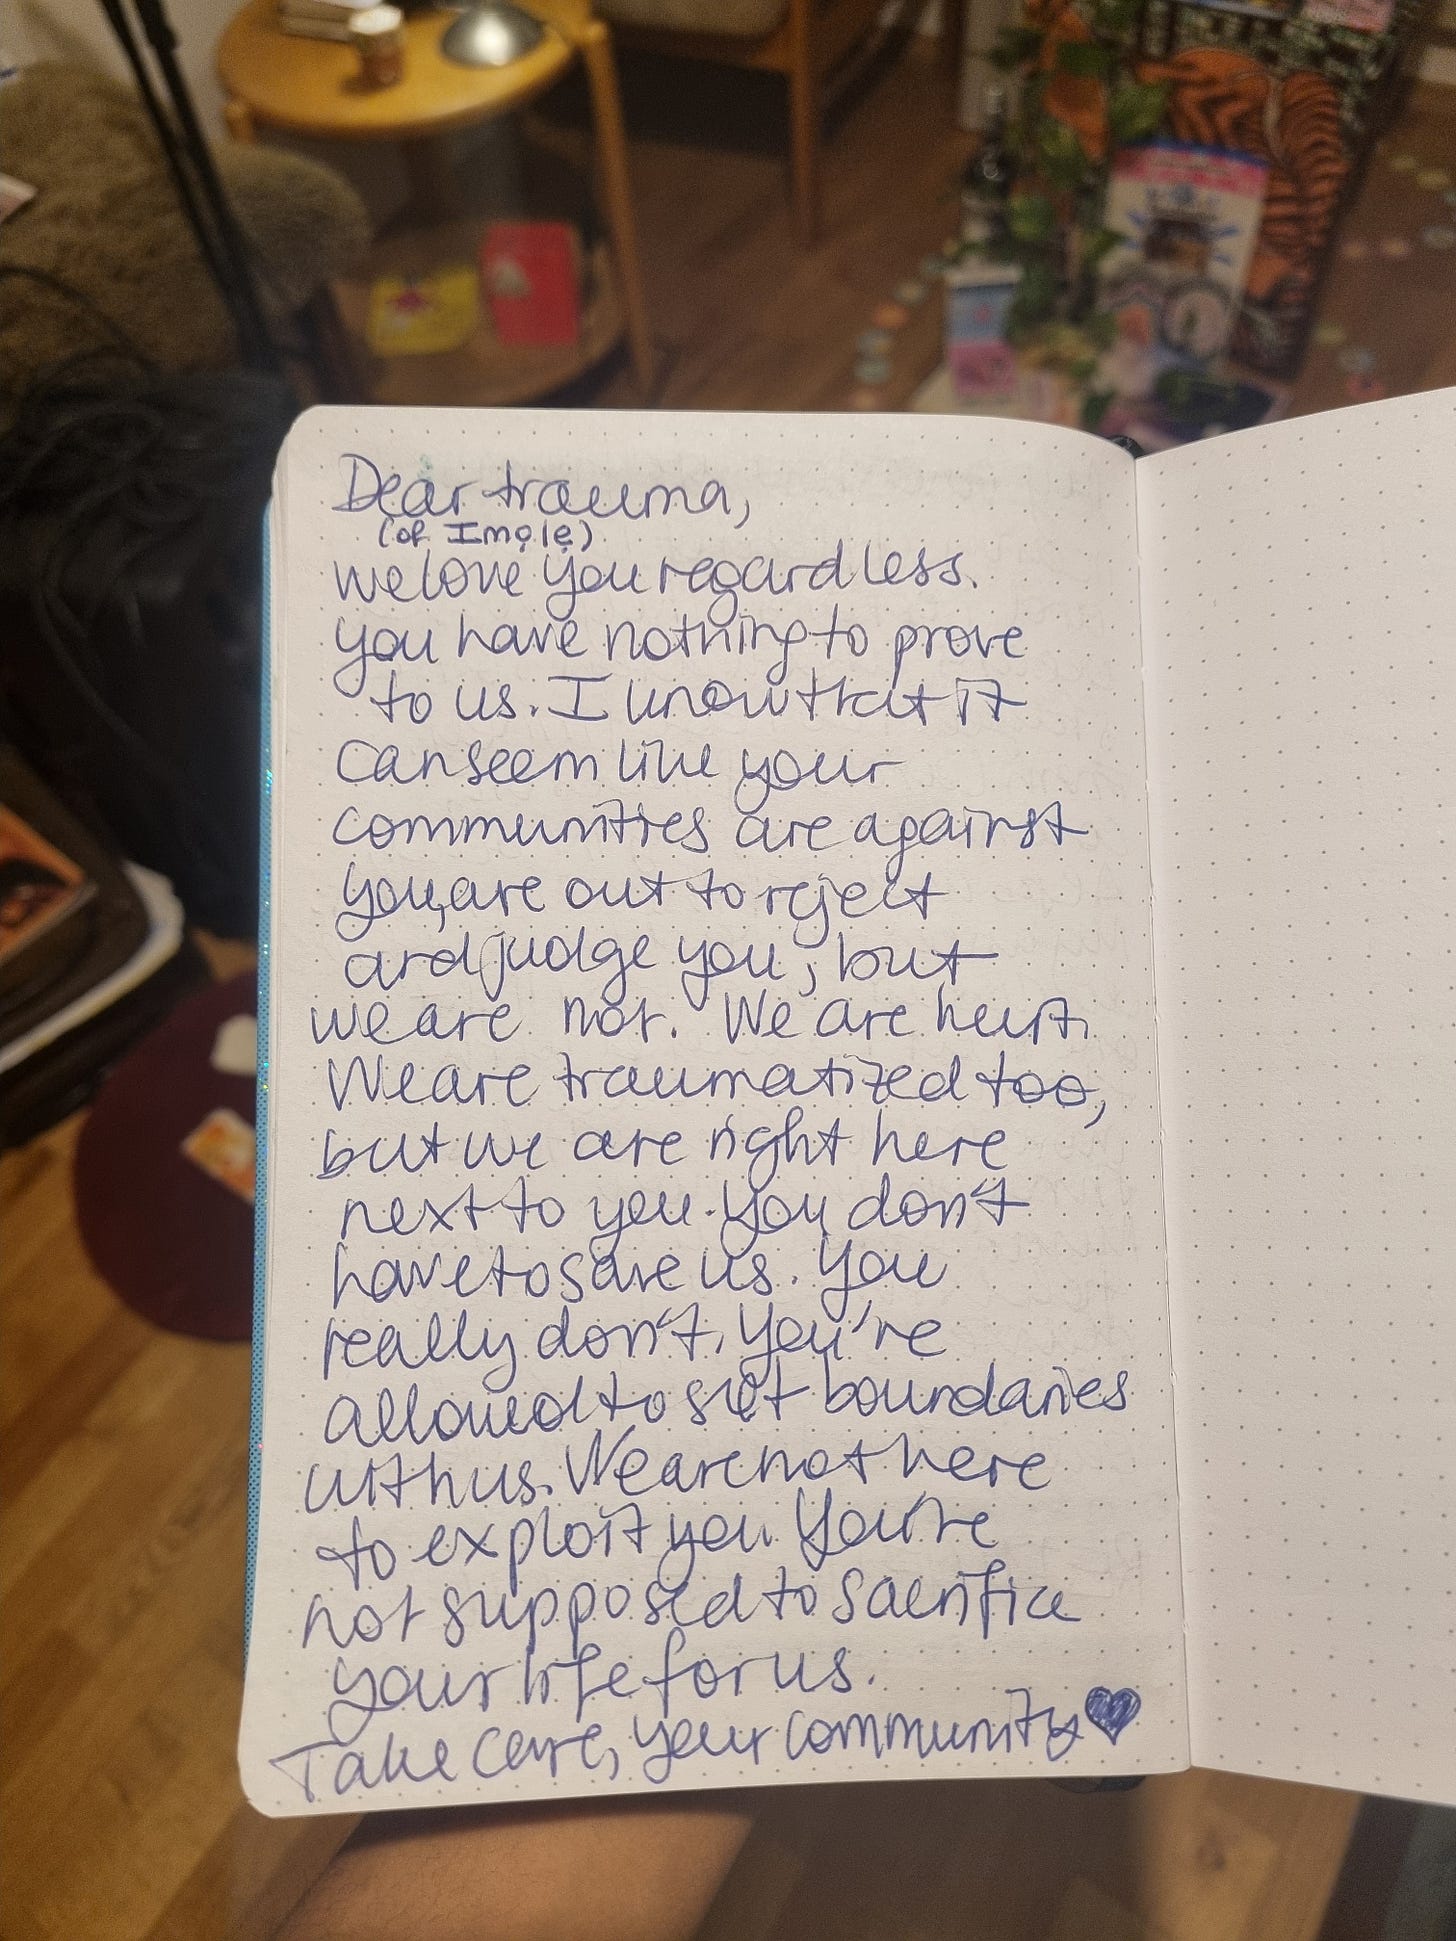 Dear trauma,
(of Imọlẹ)
we love you regardless.
you have nothing to prove
to us. I know that it
can seem like your
communities are against
you, are out to reject
and judge you, but
we are not. We are hurt.
We are traumatized too,
but we are right here
next to you. You don't
have to save us. You
really don't. You're
allowed to set boundaries
with us. We are not here
to exploit you. You're
not supposed to sacrifice
your life for us.
Take care, your community ♥